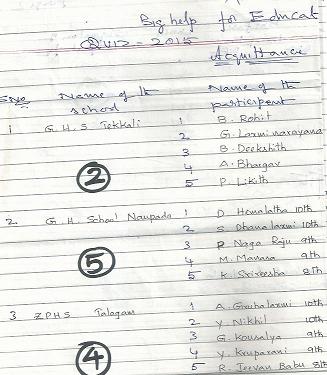 Big help for Educat
Quiz - 2015
Acquittance
S.No Name of the school Name of the participant
1 G.H.S Tekkali 1 B. Rohit
2 G. Laxmi narayana
3 B. Deekshith
4 A. Bhargav
5 P. Likith
2
2. G.H. School Naupada 1 D. Hemalatha 10th
2 S. Dhanalaxmi 10th
3 P. Naga Raju 9th
4 M. Manasa 9th
5 K. Sireesha 8th
5
3 ZPHS Talagam 1 A. Gruhalaxmi 10th
2 Y. Nikhil 10th
3 G. Kousalya 9th
4 Y. Kruparani 9th
5 R. Jeevan Babu 8th
4